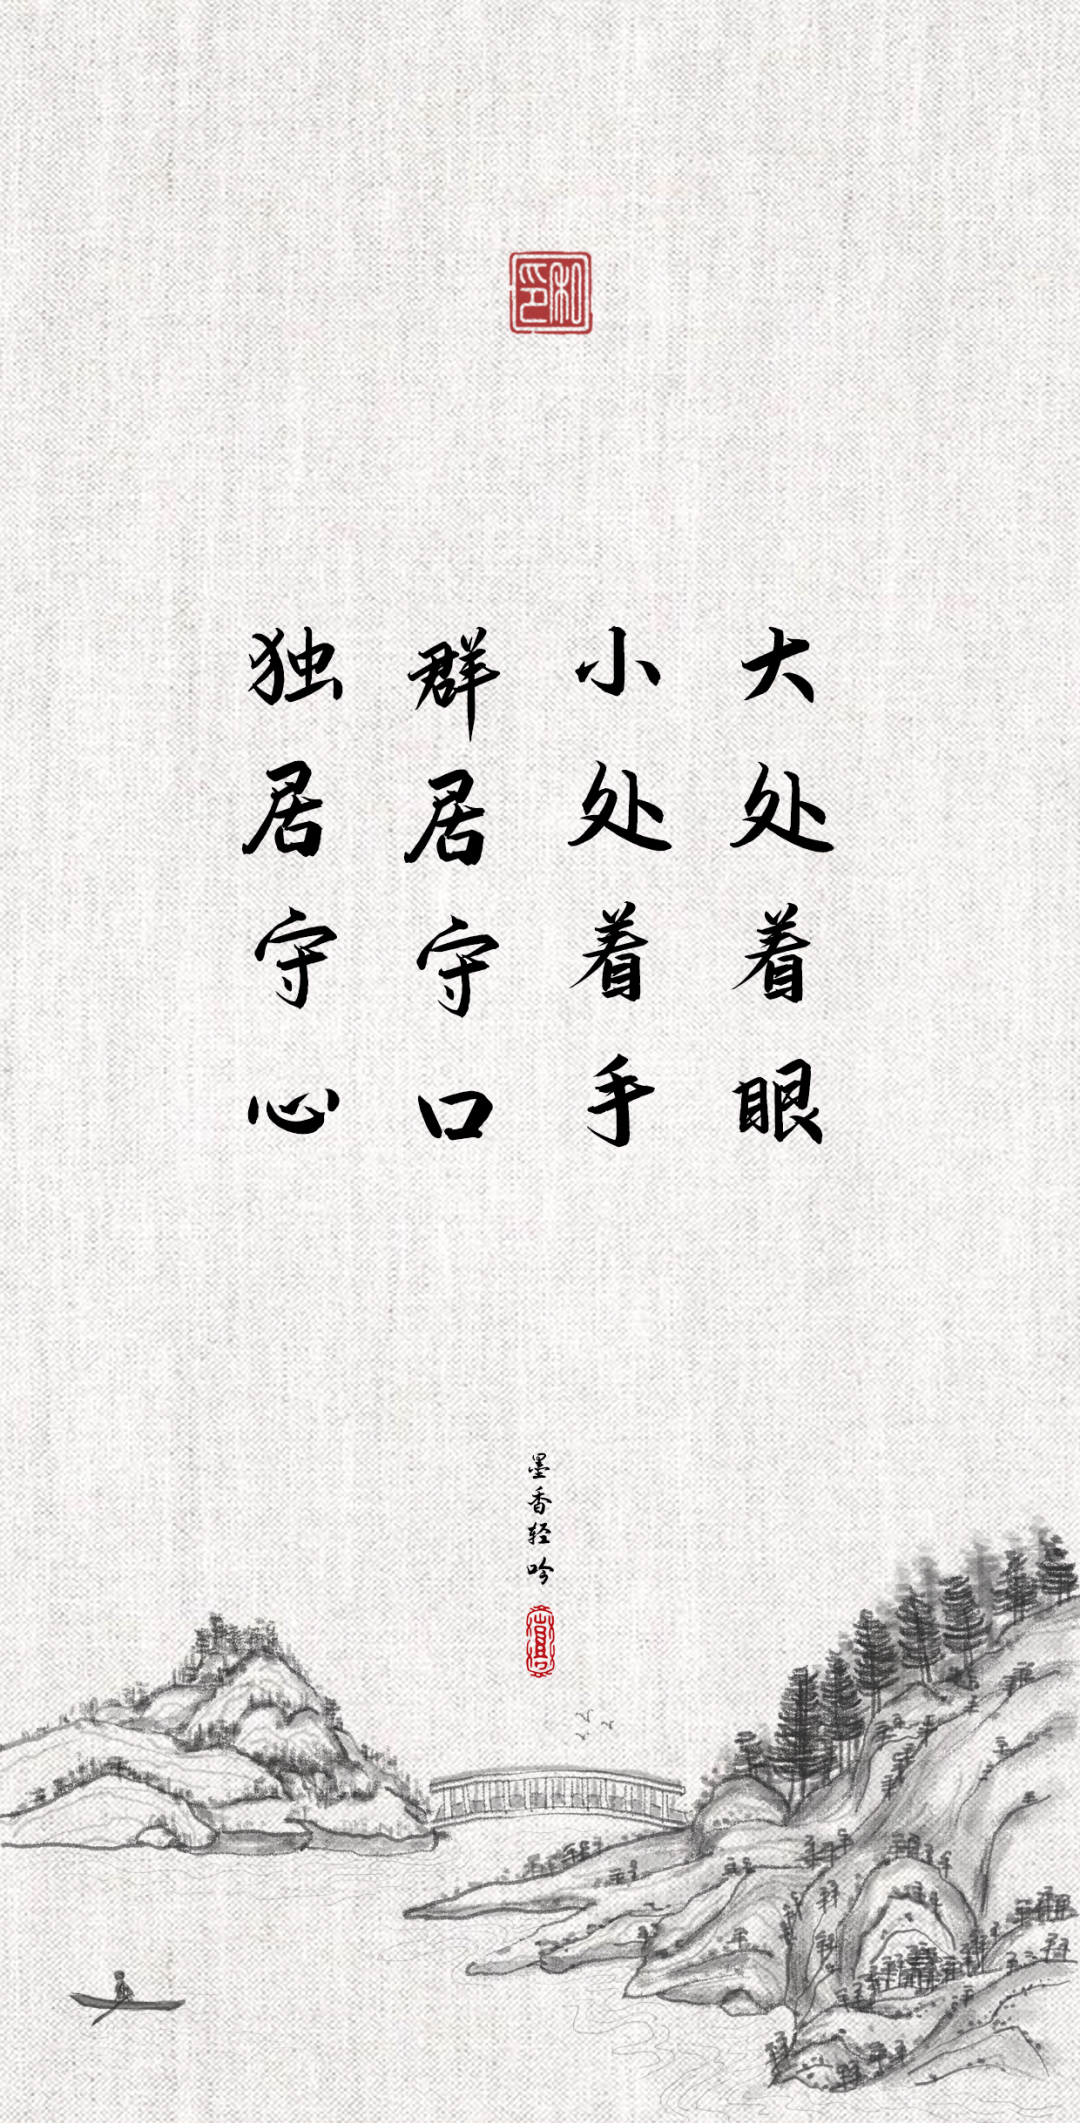 大处着眼
小处着手
群居守口
独居守心
墨香轻吟